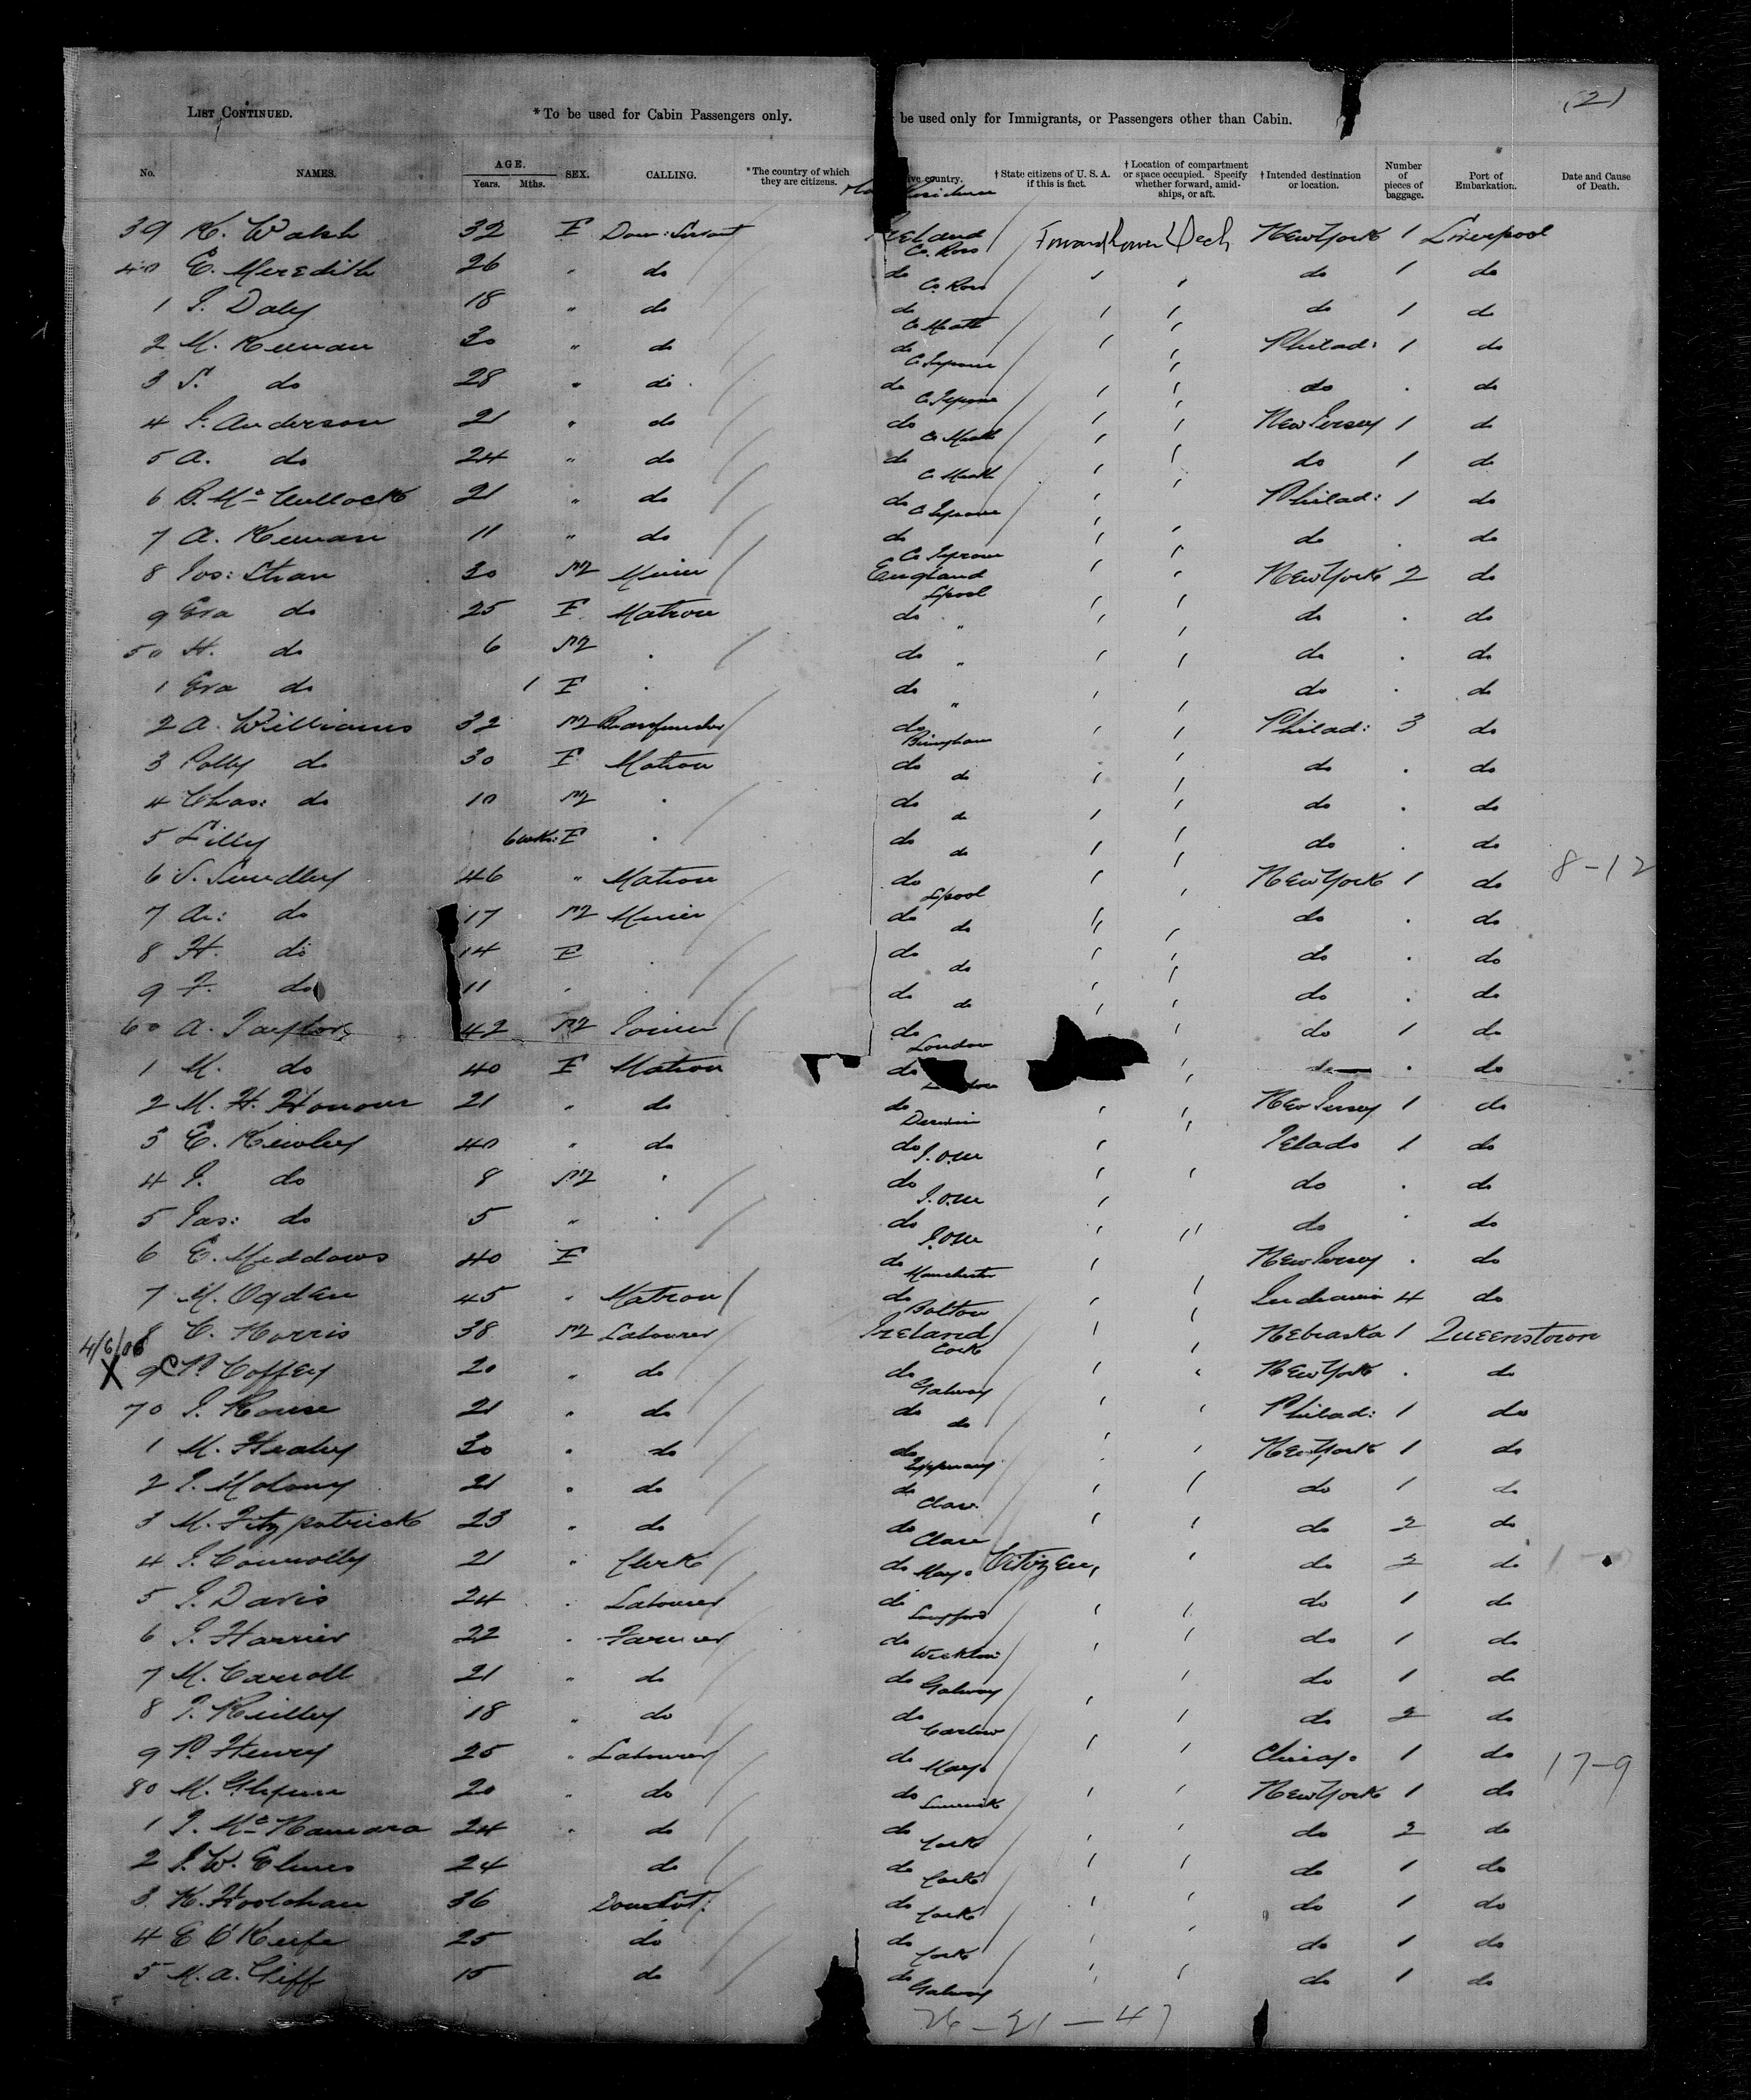 (2)
LIST CONTINUED. *To be used for Cabin Passengers only. be used only for Immigrants, or Passengers other than Cabin.
No. NAMES. AGE. Years. Mths. SEX. CALLING. *The country of which they are citizens. ive country. †State citizens of U. S. A. if this is fact. †Location of compartment or space occupied. Specify whether forward, amidships, or aft. †Intended destination or location. Number of pieces of baggage. Port of Embarkation. Date and Cause of Death.
39 K. Walsh 32 F Dom: Servant Ireland Co. Ross Forward Lower Deck New York 1 Liverpool
40 E. Meredith 26 " do do Co. Ross do 1 do
1 J. Daly 18 " do do Co Meath do 1 do
2 M. Keenan 30 " do do Philad: 1 do
3 S. do 28 " do do do . do
4 J. Anderson 21 " do do Co Meath New Jersey 1 do
5 A. do 24 " do do Co Meath do 1 do
6 B. McCullock 21 " do do Philad: 1 do
7 A. Keenan 11 " do do do . do
8 Jos: Stran 30 M Miner England L'pool New York 2 do
9 Eva do 25 F Matron do " do . do
50 H. do 6 M . do " do . do
1 Eva do 1 F . do " do . do
2 A. Williams 32 M do Philad: 3 do
3 Polly do 30 F Matron do do do . do
4 Chas: do 10 M . do do do . do
5 Lilly 6 wks: F . do do do . do
6 S. 46 " Matron do L'pool New York 1 do 8-12
7 Ar: do 17 M Miner do do do . do
8 H. do 14 F . do do do . do
9 F. do 11 . do do do . do
60 A. Taylor 42 M Joiner do London do 1 do
1 M. do 40 F Matron do do . do
2 M. H. Honour 21 " do do New Jersey 1 do
3 E. Kewley 40 " do do I.O.M 1 do
4 J. do 8 M . do I.O.M do . do
5 Jas: do 5 " . do I.O.M do . do
6 E. Meddows 40 F do Manchester New Jersey . do
7 M. Ogden 45 " Matron do Bolton Indiana 4 do
8 C. Morris 38 M Labourer Ireland Cork Nebraska 1 Queenstown
4/6/06 X 9 P. Coffey 20 " do do Galway New York . do
70 J. Rouse 21 " do do do Philad: 1 do
1 M. Healey 30 " do do New York 1 do
2 J. Molony 21 " do do Clare do 1 do
3 M. Fitzpatrick 23 " do do Clare do 2 do
4 J. Connolly 21 " Clerk do Mayo Citizen do 2 do
5 J. Davis 24 . Labourer do Longford do 1 do
6 J. Harrier 22 . Farmer do Wicklow do 1 do
7 M. Carroll 21 " do do Galway do 1 do
8 J. Reilley 18 " do do Carlow do 2 do
9 P. Henry 25 " Labourer do Mayo Chicago 1 do 17-9
80 M. 20 " do do Limerick New York 1 do
1 J. McNamara 24 " do do Cork do 2 do
2 J. W. Elmes 24 do do Cork do 1 do
3 K. Hoolohan 36 do Cork do 1 do
4 E O'Keefe 25 do do Cork do 1 do
5 M. A. 15 do do Galway do 1 do
26-21-47